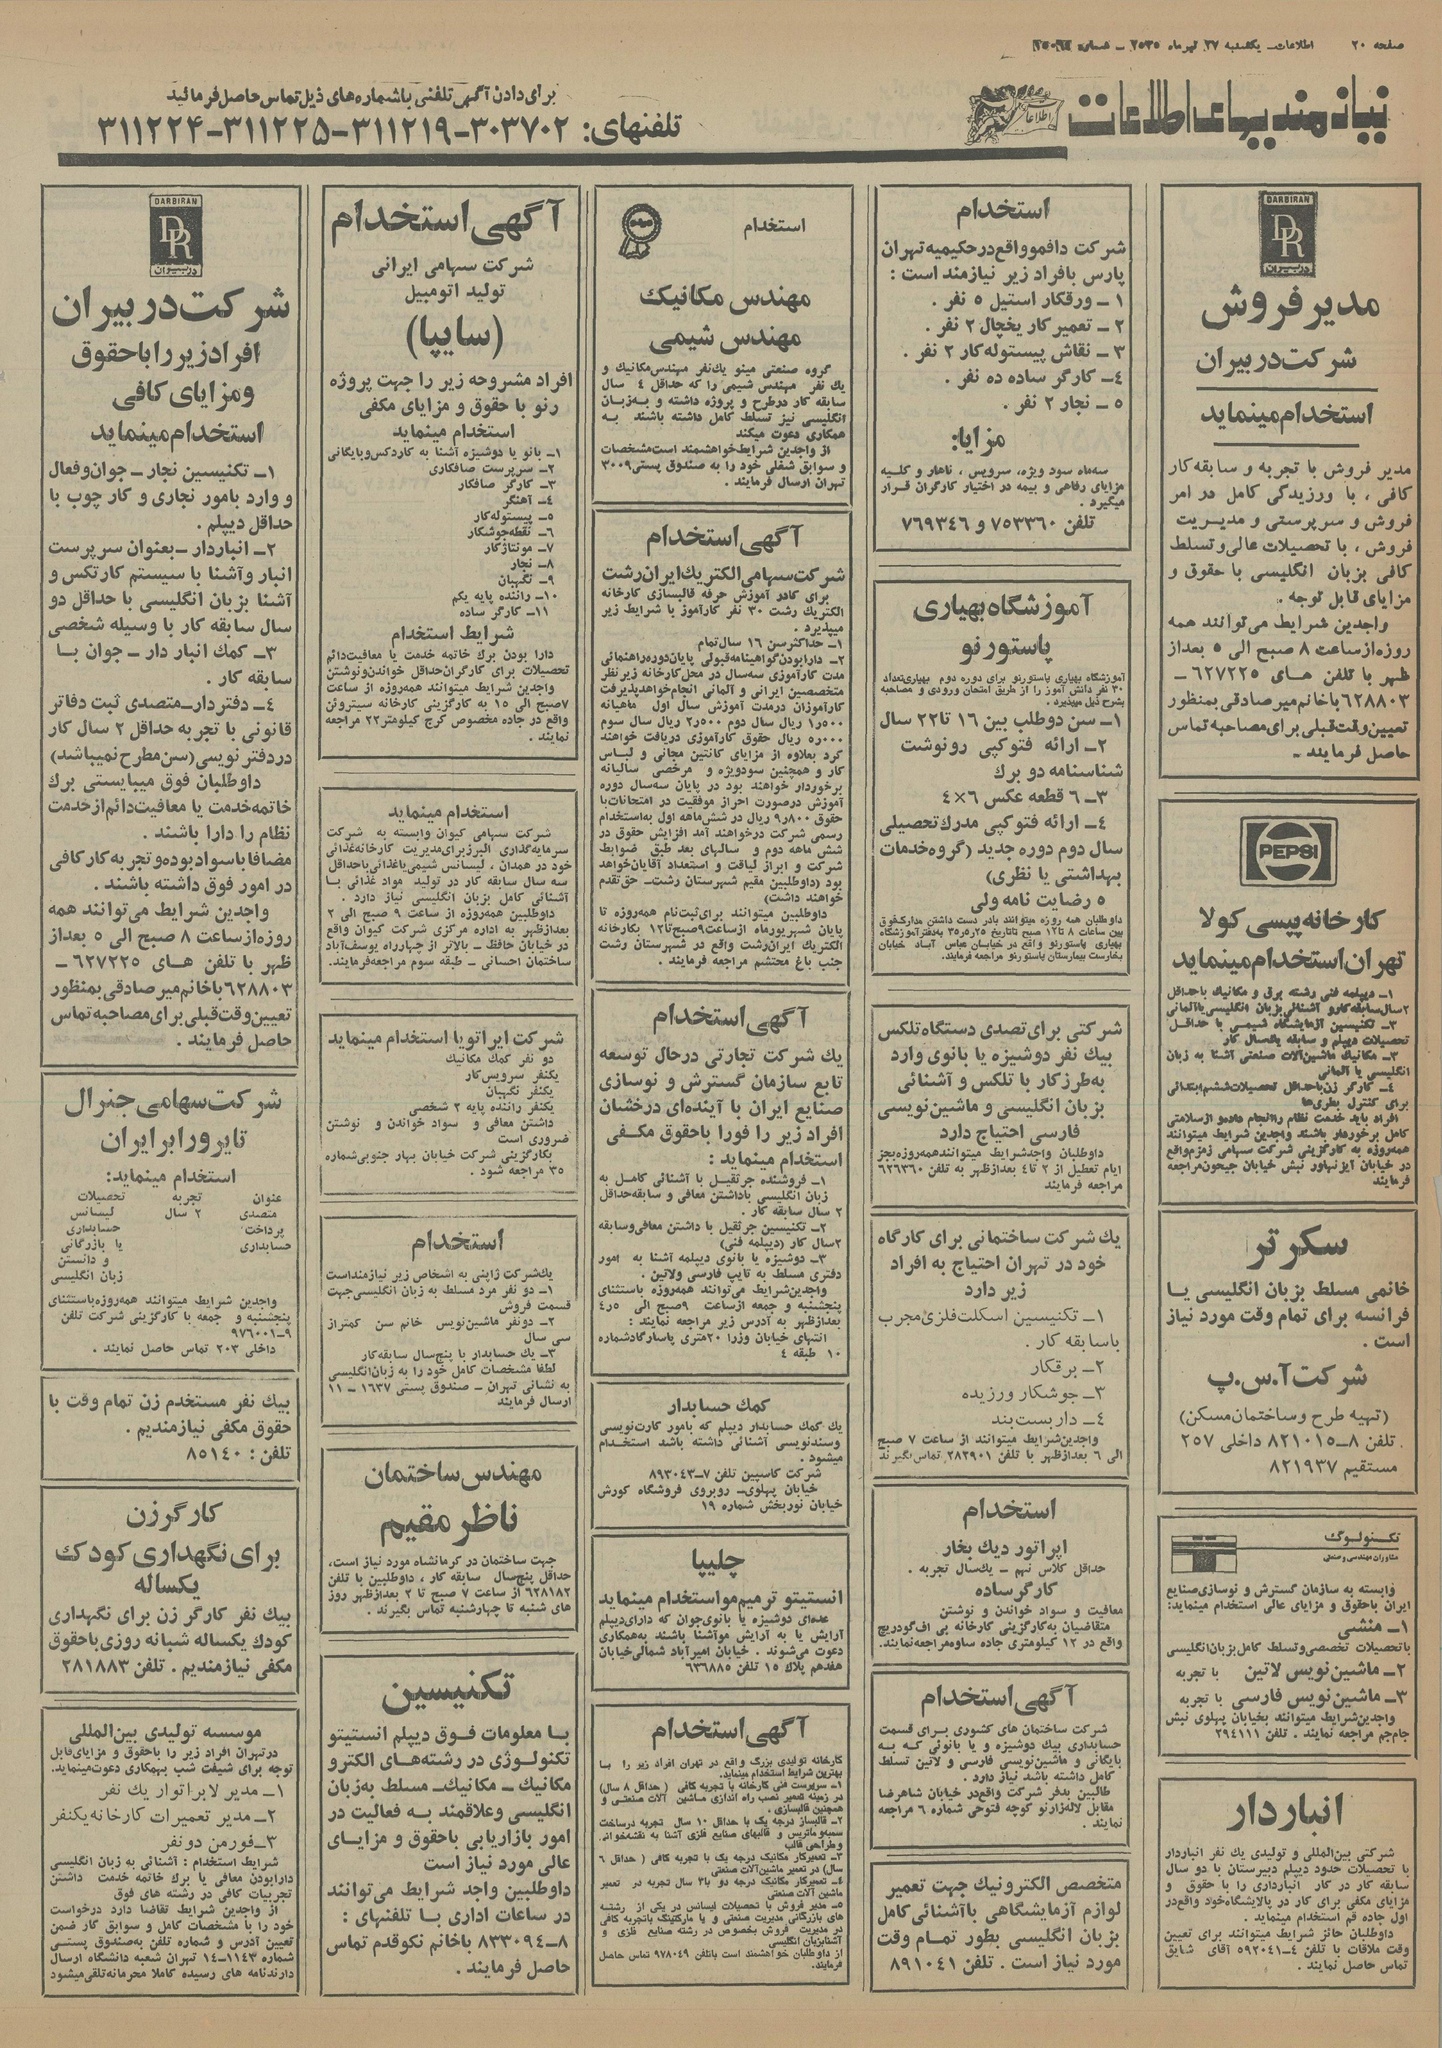 صفحه ۲۰    اطلاعات ـ یکشنبه ۲۷ تیر ماه ۲۵۳۵ ـ شماره
نیازمندیهای اطلاعات
برای دادن آگهی تلفنی با شماره‌های ذیل تماس حاصل فرمائید
تلفنهای: ۳۰۳۷۰۲-۳۱۱۲۱۹-۳۱۱۲۲۵-۳۱۱۲۲۴
DARBIRAN
DR
دربیران
مدیر فروش
شرکت دربیران
استخدام مینماید
مدیر فروش با تجربه و سابقه کار
کافی ، با ورزیدگی کامل در امر
فروش و سرپرستی و مدیریت
فروش ، با تحصیلات عالی و تسلط
کافی بزبان انگلیسی با حقوق و
مزایای قابل توجه .
واجدین شرایط می‌توانند همه
روزه از ساعت ۸ صبح الی ۵ بعداز
ظهر با تلفن های ۶۲۷۲۲۵ ـ
۶۲۸۸۰۳ با خانم میرصادقی بمنظور
تعیین وقت قبلی برای مصاحبه تماس
حاصل فرمایند ـ
PEPSI
کارخانه پپسی کولا
تهران استخدام مینماید
۱ـ دیپلمه فنی رشته برق و مکانیک با حداقل
۲سال سابقه کار و آشنائی بزبان انگلیسی یا آلمانی
۲ـ تکنیسین آزمایشگاه شیمی با حداقل
تحصیلات دیپلم و سابقه یکسال کار
۳ـ مکانیک ماشین‌آلات صنعتی آشنا به زبان
انگلیسی یا آلمانی
۴ـ کارگر زن با حداقل تحصیلات ششم ابتدائی
برای کنترل بطری‌ها
افراد باید خدمت نظام را انجام داده و از سلامتی
کامل برخوردار باشند واجدین شرایط میتوانند
همه‌روزه به کارگزینی شرکت سهامی زمزم واقع
در خیابان آیزنهاور نبش خیابان جیحون مراجعه
فرمایند
سکرتر
خانمی مسلط بزبان انگلیسی یا
فرانسه برای تمام وقت مورد نیاز
است .
شرکت آ.س.پ
(تهیه طرح و ساختمان مسکن)
تلفن ۸ـ۸۲۱۰۱۵ داخلی ۲۵۷ .
مستقیم ۸۲۱۹۳۷
تکنولوگ
مشاوران مهندسی و صنعتی
وابسته به سازمان گسترش و نوسازی صنایع
ایران با حقوق و مزایای عالی استخدام مینماید:
۱ـ منشی
با تحصیلات تخصصی و تسلط کامل بزبان انگلیسی
۲ـ ماشین نویس لاتین با تجربه
۳ـ ماشین نویس فارسی با تجربه
واجدین شرایط میتوانند بخیابان پهلوی نبش
جام‌جم مراجعه نمایند . تلفن ۲۹۴۱۱۱
انباردار
شرکتی بین‌المللی و تولیدی یک نفر انباردار
با تحصیلات حدود دیپلم دبیرستان با دو سال
سابقه کار در کار انبارداری را با حقوق و
مزایای مکفی برای کار در پالایشگاه خود واقع در
اول جاده قم استخدام مینماید .
داوطلبان حائز شرایط میتوانند برای تعیین
وقت ملاقات با تلفن ۴ـ۵۹۲۰۴۱ آقای شایق
تماس حاصل نمایند .
استخدام
شرکت دافمو واقع در حکیمیه تهران
پارس بافراد زیر نیازمند است :
۱ـ ورقکار استیل ۵ نفر .
۲ـ تعمیر کار یخچال ۲ نفر .
۳ـ نقاش پیستوله کار ۲ نفر .
۴ـ کارگر ساده ده نفر .
۵ ـ نجار ۲ نفر .
مزایا:
سه‌ماه سود ویژه، سرویس ، ناهار و کلیه
مزایای رفاهی و بیمه در اختیار کارگران قرار
میگیرد .
تلفن ۷۵۳۳۶۰ و ۷۶۹۳۴۶
آموزشگاه بهیاری
پاستور نو
آموزشگاه بهیاری پاستورنو برای دوره دوم بهیاری تعداد
۳۰ نفر دانش آموز را از طریق امتحان ورودی و مصاحبه
بشرح ذیل میپذیرد .
۱ـ سن دوطلب بین ۱۶ تا ۲۲ سال
۲ـ ارائه فتوکپی رونوشت
شناسنامه دو برگ
۳ـ ۶ قطعه عکس ۶×۴
۴ـ ارائه فتوکپی مدرک تحصیلی
سال دوم دوره جدید (گروه خدمات
بهداشتی یا نظری)
۵ رضایت نامه ولی
داوطلبان همه روزه میتوانند با در دست داشتن مدارک فوق
بین ساعات ۸ تا ۱۲ صبح تا تاریخ ۳۵ر۵ر۲۵ به دفتر آموزشگاه
بهیاری پاستورنو واقع در خیابان عباس آباد خیابان
بخارست بیمارستان پاستورنو مراجعه فرمایند.
شرکتی برای تصدی دستگاه تلکس
بیک نفر دوشیزه یا بانوی وارد
به‌طرز کار با تلکس و آشنائی
بزبان انگلیسی و ماشین نویسی
فارسی احتیاج دارد
داوطلبان واجد شرایط میتوانند همه روزه بجز
ایام تعطیل از ۲ تا ۴ بعدازظهر به تلفن ۶۲۶۳۶۰
مراجعه فرمایند
یک شرکت ساختمانی برای کارگاه
خود در تهران احتیاج به افراد
زیر دارد
۱ـ تکنیسین اسکلت فلزی مجرب
با سابقه کار .
۲ـ برقکار
۳ـ جوشکار ورزیده
۴ـ داربست بند
واجدین شرایط میتوانند از ساعت ۷ صبح
الی ۶ بعدازظهر با تلفن ۲۸۲۹۰۱ تماس بگیرند
استخدام
اپراتور دیگ بخار
حداقل کلاس نهم ـ یکسال تجربه .
کارگر ساده
معافیت و سواد خواندن و نوشتن
متقاضیان به کارگزینی کارخانه بی اف گودریچ
واقع در ۱۲ کیلومتری جاده ساوه مراجعه نمایند.
آگهی استخدام
شرکت ساختمان های کشوری برای قسمت
حسابداری بیک دوشیزه و یا بانوئی که به
بایگانی و ماشین نویسی فارسی و لاتین تسلط
کامل داشته باشد نیاز دارد .
طالبین بدفتر شرکت واقع در خیابان شاهرضا
مقابل لاله‌زارنو کوچه فتوحی شماره ۶ مراجعه
نمایند .
متخصص الکترونیک جهت تعمیر
لوازم آزمایشگاهی با آشنائی کامل
بزبان انگلیسی بطور تمام وقت
مورد نیاز است . تلفن ۸۹۱۰۴۱
استخدام
مهندس مکانیک
مهندس شیمی
گروه صنعتی مینو یک نفر مهندس مکانیک و
یک نفر مهندس شیمی را که حداقل ۴ سال
سابقه کار دو طرح و پروژه داشته و به زبان
انگلیسی نیز تسلط کامل داشته باشند به
همکاری دعوت میکند
از واجدین شرایط خواهشمند است مشخصات
و سوابق شغلی خود را به صندوق پستی ۳۰۰۹
تهران ارسال فرمایند .
آگهی استخدام
شرکت سهامی الکتریک ایران رشت
برای کادر آموزش حرفه قالبسازی کارخانه
الکتریک رشت ۳۰ نفر کارآموز با شرایط زیر
میپذیرد .
۱ـ حداکثر سن ۱۶ سال تمام
۲ـ دارا بودن گواهینامه قبولی پایان دوره راهنمائی
مدت کارآموزی سه‌سال در محل کارخانه زیر نظر
متخصصین ایرانی و آلمانی انجام خواهد پذیرفت
کارآموزان در مدت آموزش سال اول ماهیانه
۱ر۵۰۰ ریال سال دوم ۲ر۵۰۰ ریال سال سوم
۵ر۰۰۰ ریال حقوق کارآموزی دریافت خواهند
کرد بعلاوه از مزایای کانتین مجانی و لباس
کار و همچنین سود ویژه و مرخصی سالیانه
برخوردار خواهند بود در پایان سه‌سال دوره
آموزش درصورت احراز موفقیت در امتحانات با
حقوق ۹ر۸۰۰ ریال در شش‌ماهه اول به استخدام
رسمی شرکت درخواهند آمد افزایش حقوق در
شش ماهه دوم و سالهای بعد طبق ضوابط
شرکت و ابراز لیاقت و استعداد آقایان خواهد
بود (داوطلبین مقیم شهرستان رشت ـ حق تقدم
خواهند داشت)
داوطلبین میتوانند برای ثبت‌نام همه‌روزه تا
پایان شهریورماه از ساعت ۹ صبح تا ۱۲ بکارخانه
الکتریک ایران رشت واقع در شهرستان رشت
جنب باغ محتشم مراجعه فرمایند .
آگهی استخدام
یک شرکت تجارتی درحال توسعه
تابع سازمان گسترش و نوسازی
صنایع ایران با آینده‌ای درخشان
افراد زیر را فورا باحقوق مکفی
استخدام مینماید :
۱ـ فروشنده جرثقیل با آشنائی کامل به
زبان انگلیسی باداشتن معافی و سابقه حداقل
۲ سال سابقه کار .
۲ـ تکنیسین جرثقیل با داشتن معافی و سابقه
۲سال کار (دیپلمه فنی)
۳ـ دوشیزه یا بانوی دیپلمه آشنا به امور
دفتری مسلط به تایپ فارسی ولاتین .
واجدین شرایط می‌توانند همه‌روزه باستثنای
پنجشنبه و جمعه از ساعت ۹ صبح الی ۴ر۵
بعدازظهر به آدرس زیر مراجعه نمایند :
انتهای خیابان وزرا ۲۰متری پاسارگاد شماره
۱۰ طبقه ۴
کمک حسابدار
یک کمک حسابدار دیپلم که بامور کارت نویسی
وسند نویسی آشنائی داشته باشد استخدام
میشود .
شرکت کاسپین تلفن ۷ـ۸۹۳۰۴۳
خیابان پهلوی ـ روبروی فروشگاه کورش
خیابان نوربخش شماره ۱۹
چلیپا
انستیتو ترمیم مو استخدام مینماید
عده‌ای دوشیزه یا بانوی جوان که دارای دیپلم
آرایش یا به آرایش مو آشنا باشند به همکاری
دعوت می‌شوند . خیابان امیرآباد شمالی خیابان
هفدهم پلاک ۱۵ تلفن ۶۳۶۸۸۵
آگهی استخدام
کارخانه تولیدی بزرگ واقع در تهران افراد زیر را با
بهترین شرایط استخدام مینماید.
۱ـ سرپرست فنی کارخانه با تجربه کافی ( حداقل ۸ سال)
در زمینه تعمیر نصب راه اندازی ماشین آلات صنعتی و
همچنین قالبسازی .
۲ـ قالبساز درجه یک با حداقل ۱۰ سال تجربه در ساخت
سمبه و ماتریس و قالبهای صنایع فلزی آشنا به نقشه‌خوانی
و طراحی قالب
۳ـ تعمیرکار مکانیک درجه یک با تجربه کافی ( حداقل ۶
سال) در تعمیر ماشین‌آلات صنعتی
۴ـ تعمیرکار مکانیک درجه دو با ۳ سال تجربه در تعمیر
ماشین آلات صنعتی
۵ـ مدیر فروش با تحصیلات لیسانس در یکی از رشته
های بازرگانی مدیریت صنعتی و یا مارکتینگ با تجربه کافی
در مدیریت فروش بخصوص در رشته صنایع فلزی و
آشنا بزبان انگلیسی
از داوطلبان خواهشمند است با تلفن ۹۷۸۰۴۹ تماس حاصل
فرمایند.
آگهی استخدام
شرکت سهامی ایرانی
تولید اتومبیل
(سایپا)
افراد مشروحه زیر را جهت پروژه
رنو با حقوق و مزایای مکفی
استخدام مینماید
۱ـ بانو یا دوشیزه آشنا به کاردکس و بایگانی
۲ـ سرپرست صافکاری
۳ـ کارگر صافکار
۴ـ آهنگر
۵ـ پیستوله کار
۶ـ نقطه جوشکار
۷ـ مونتاژکار
۸ـ نجار
۹ـ نگهبان
۱۰ـ راننده پایه یکم
۱۱ـ کارگر ساده
شرایط استخدام
دارا بودن برگ خاتمه خدمت یا معافیت دائم
تحصیلات برای کارگران حداقل خواندن و نوشتن
واجدین شرایط میتوانند همه‌روزه از ساعت
۷صبح الی ۱۵ به کارگزینی کارخانه سیتروئن
واقع در جاده مخصوص کرج کیلومتر ۲۳ مراجعه
نمایند .
استخدام مینماید
شرکت سهامی کیوان وابسته به شرکت
سرمایه گذاری البرز برای مدیریت کارخانه غذائی
خود در همدان ، لیسانس شیمی یا غذائی با حداقل
سه سال سابقه کار در تولید مواد غذائی با
آشنائی کامل بزبان انگلیسی نیاز دارد .
داوطلبین همه‌روزه از ساعت ۹ صبح الی ۲
بعدازظهر به اداره مرکزی شرکت کیوان واقع
در خیابان حافظ ـ بالاتر از چهارراه یوسف‌آباد
ساختمان احسانی ـ طبقه سوم مراجعه فرمایند.
شرکت ایرانویا استخدام مینماید
دو نفر کمک مکانیک
یکنفر سرویس کار
یکنفر نگهبان
یکنفر راننده پایه ۲ شخصی
داشتن معافی و سواد خواندن و نوشتن
ضروری است
بکارگزینی شرکت خیابان بهار جنوبی شماره
۳۵ مراجعه شود .
استخدام
یک شرکت ژاپنی به اشخاص زیر نیازمند است
۱ـ دو نفر مرد مسلط به زبان انگلیسی جهت
قسمت فروش
۲ـ دونفر ماشین نویس خانم سن کمتر از
سی سال
۳ـ یک حسابدار با پنج سال سابقه کار
لطفا مشخصات کامل خود را به زبان انگلیسی
به نشانی تهران ـ صندوق پستی ۱۶۳۷ ـ ۱۱
ارسال فرمایند
مهندس ساختمان
ناظر مقیم
جهت ساختمان در کرمانشاه مورد نیاز است،
حداقل پنج‌سال سابقه کار ، داوطلبین با تلفن
۶۲۸۱۸۲ از ساعت ۷ صبح تا ۲ بعدازظهر روز
های شنبه تا چهارشنبه تماس بگیرند .
تکنیسین
با معلومات فوق دیپلم انستیتو
تکنولوژی در رشته‌های الکترو
مکانیک ـ مکانیک ـ مسلط به‌زبان
انگلیسی و علاقمند به فعالیت در
امور بازاریابی باحقوق و مزایای
عالی مورد نیاز است
داوطلبین واجد شرایط می‌توانند
در ساعات اداری با تلفنهای :
۸ـ۸۳۳۰۹۴ با خانم نکوقدم تماس
حاصل فرمایند .
DARBIRAN
DR
دربیران
شرکت دربیران
افراد زیر را با حقوق
و مزایای کافی
استخدام مینماید
۱ـ تکنیسین نجار ـ جوان و فعال
و وارد بامور نجاری و کار چوب با
حداقل دیپلم .
۲ـ انباردار ـ بعنوان سرپرست
انبار و آشنا با سیستم کارتکس و
آشنا بزبان انگلیسی با حداقل دو
سال سابقه کار با وسیله شخصی
۳ـ کمک انبار دار ـ جوان با
سابقه کار .
۴ـ دفتردار ـ متصدی ثبت دفاتر
قانونی با تجربه حداقل ۲ سال کار
در دفتر نویسی (سن مطرح نمیباشد)
داوطلبان فوق میبایستی برگ
خاتمه خدمت یا معافیت دائم از خدمت
نظام را دارا باشند .
مضافا باسواد بوده و تجربه کار کافی
در امور فوق داشته باشند .
واجدین شرایط می‌توانند همه
روزه از ساعت ۸ صبح الی ۵ بعداز
ظهر با تلفن های ۶۲۷۲۲۵ ـ
۶۲۸۸۰۳ با خانم میرصادقی بمنظور
تعیین وقت قبلی برای مصاحبه تماس
حاصل فرمایند .
شرکت سهامی جنرال
تایر و رابر ایران
استخدام مینماید:
عنوان تجربه تحصیلات
متصدی ۲ سال لیسانس
پرداخت حسابداری
حسابداری یا بازرگانی
و دانستن
زبان انگلیسی
واجدین شرایط میتوانند همه‌روزه باستثنای
پنجشنبه و جمعه با کارگزینی شرکت تلفن
۹ـ۹۷۶۰۰۱
داخلی ۲۰۳ تماس حاصل نمایند .
بیک نفر مستخدم زن تمام وقت با
حقوق مکفی نیازمندیم .
تلفن : ۸۵۱۴۰
کارگر زن
برای نگهداری کودک
یکساله
بیک نفر کارگر زن برای نگهداری
کودک یکساله شبانه روزی باحقوق
مکفی نیازمندیم . تلفن ۲۸۱۸۸۳
موسسه تولیدی بین‌المللی
در تهران افراد زیر را باحقوق و مزایای قابل
توجه برای شیفت شب بهمکاری دعوت مینماید.
۱ـ مدیر لابراتوار یک نفر
۲ـ مدیر تعمیرات کارخانه یکنفر
۳ـ فورمن دو نفر
شرایط استخدام : آشنائی به زبان انگلیسی
دارا بودن معافی یا برگ خاتمه خدمت داشتن
تجربیات کافی در رشته های فوق
از واجدین شرایط تقاضا دارد درخواست
خود را با مشخصات کامل و سوابق کار ضمن
تعیین آدرس و شماره تلفن به صندوق پستی
شماره ۱۱۴۳ـ۱۴ تهران شعبه دانشگاه ارسال
دارند نامه های رسیده کاملا محرمانه تلقی میشود